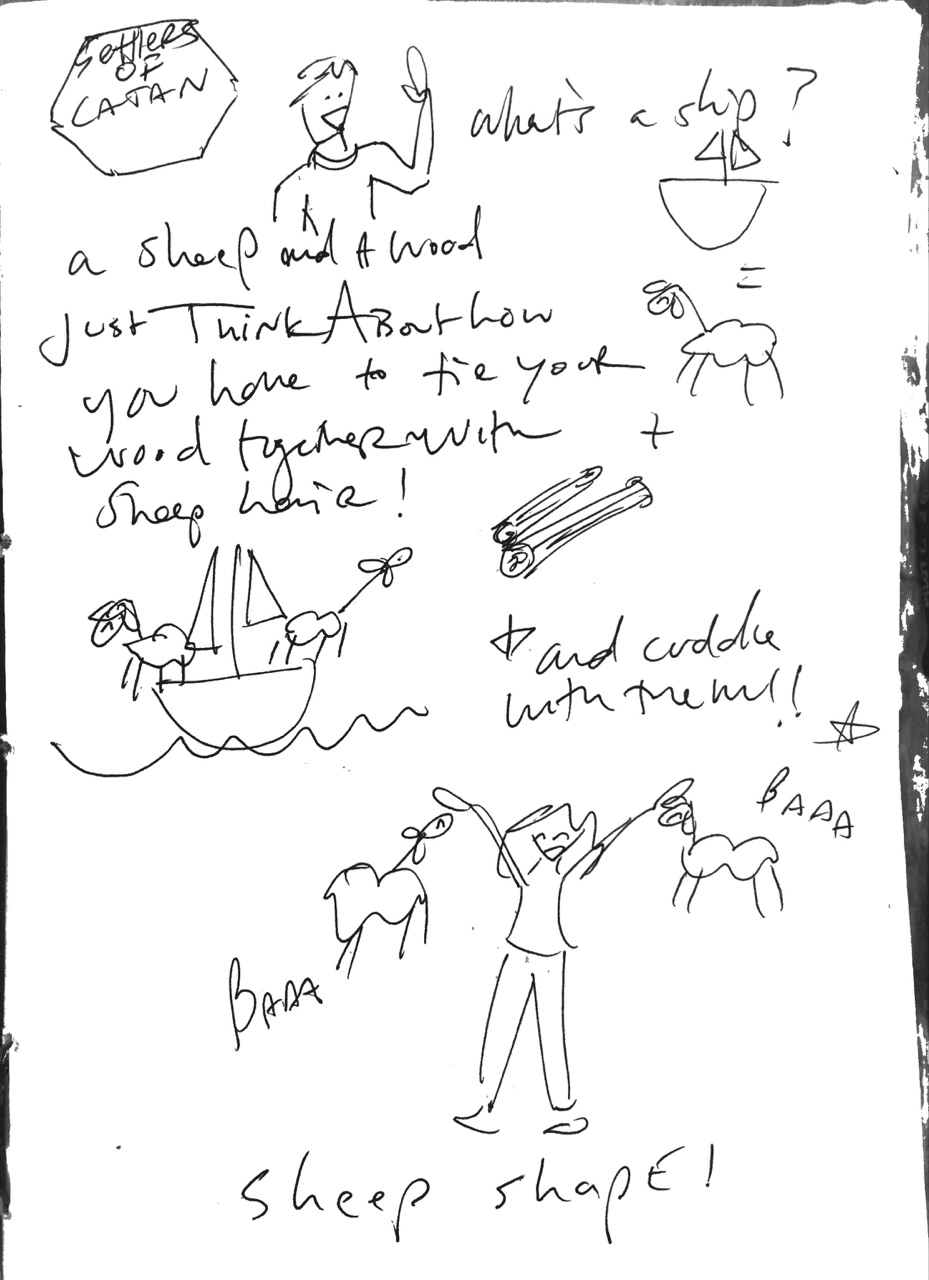 Settlers
OF
CATAN
what's a ship?
a sheep and A wood
Just Think About how
you have to tie your
wood together with
sheep hair!
=
+
+ and cuddle
with them!!
BAAA
BAAA
sheep shapE!